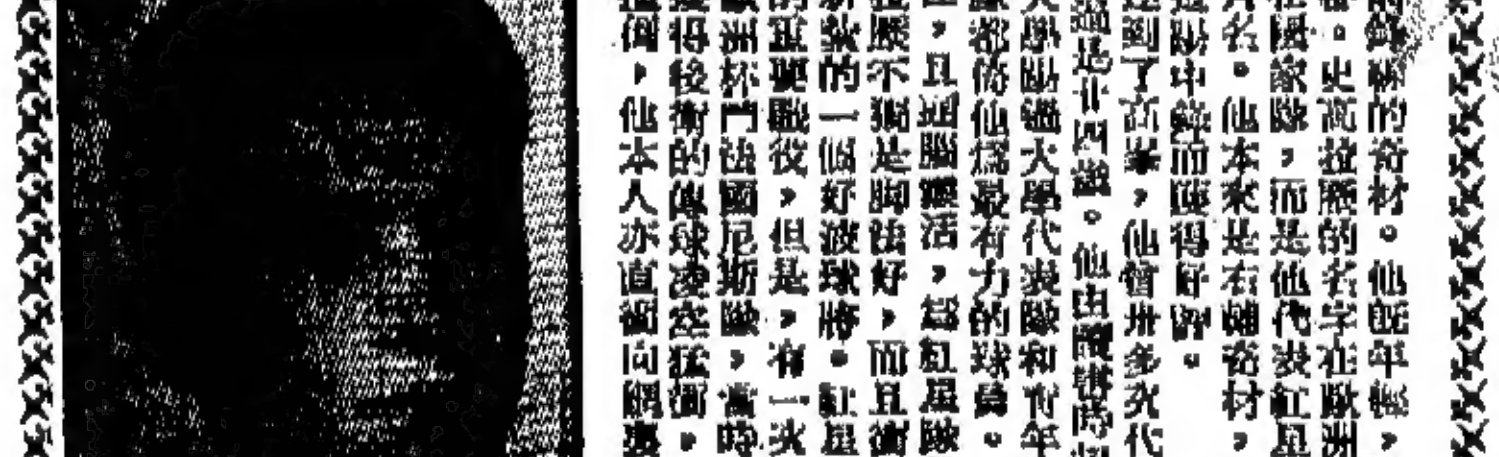 的鋒綫的奇材。他旣年輕,
。史高拉的名字在歐洲
國家隊,而是他代表紅星
名。他本來是右輔奇材,
踢中鋒而獲得好評。
達到了高峯,他曾卅多次代
過是廿四歲。他由讀書時
大學踢過大學代表隊和青年
隊都倚他爲最有力的球員。
,且頭腦靈活,爲紅星隊
不獨是脚法好,而且衝
的一個好波球將。紅星
的重要戰役,但是,有一次
歐洲杯鬥法國尼斯隊,當時
接得後衛的傳球凌空猛衝,
倒,他本人亦直衝向網裏